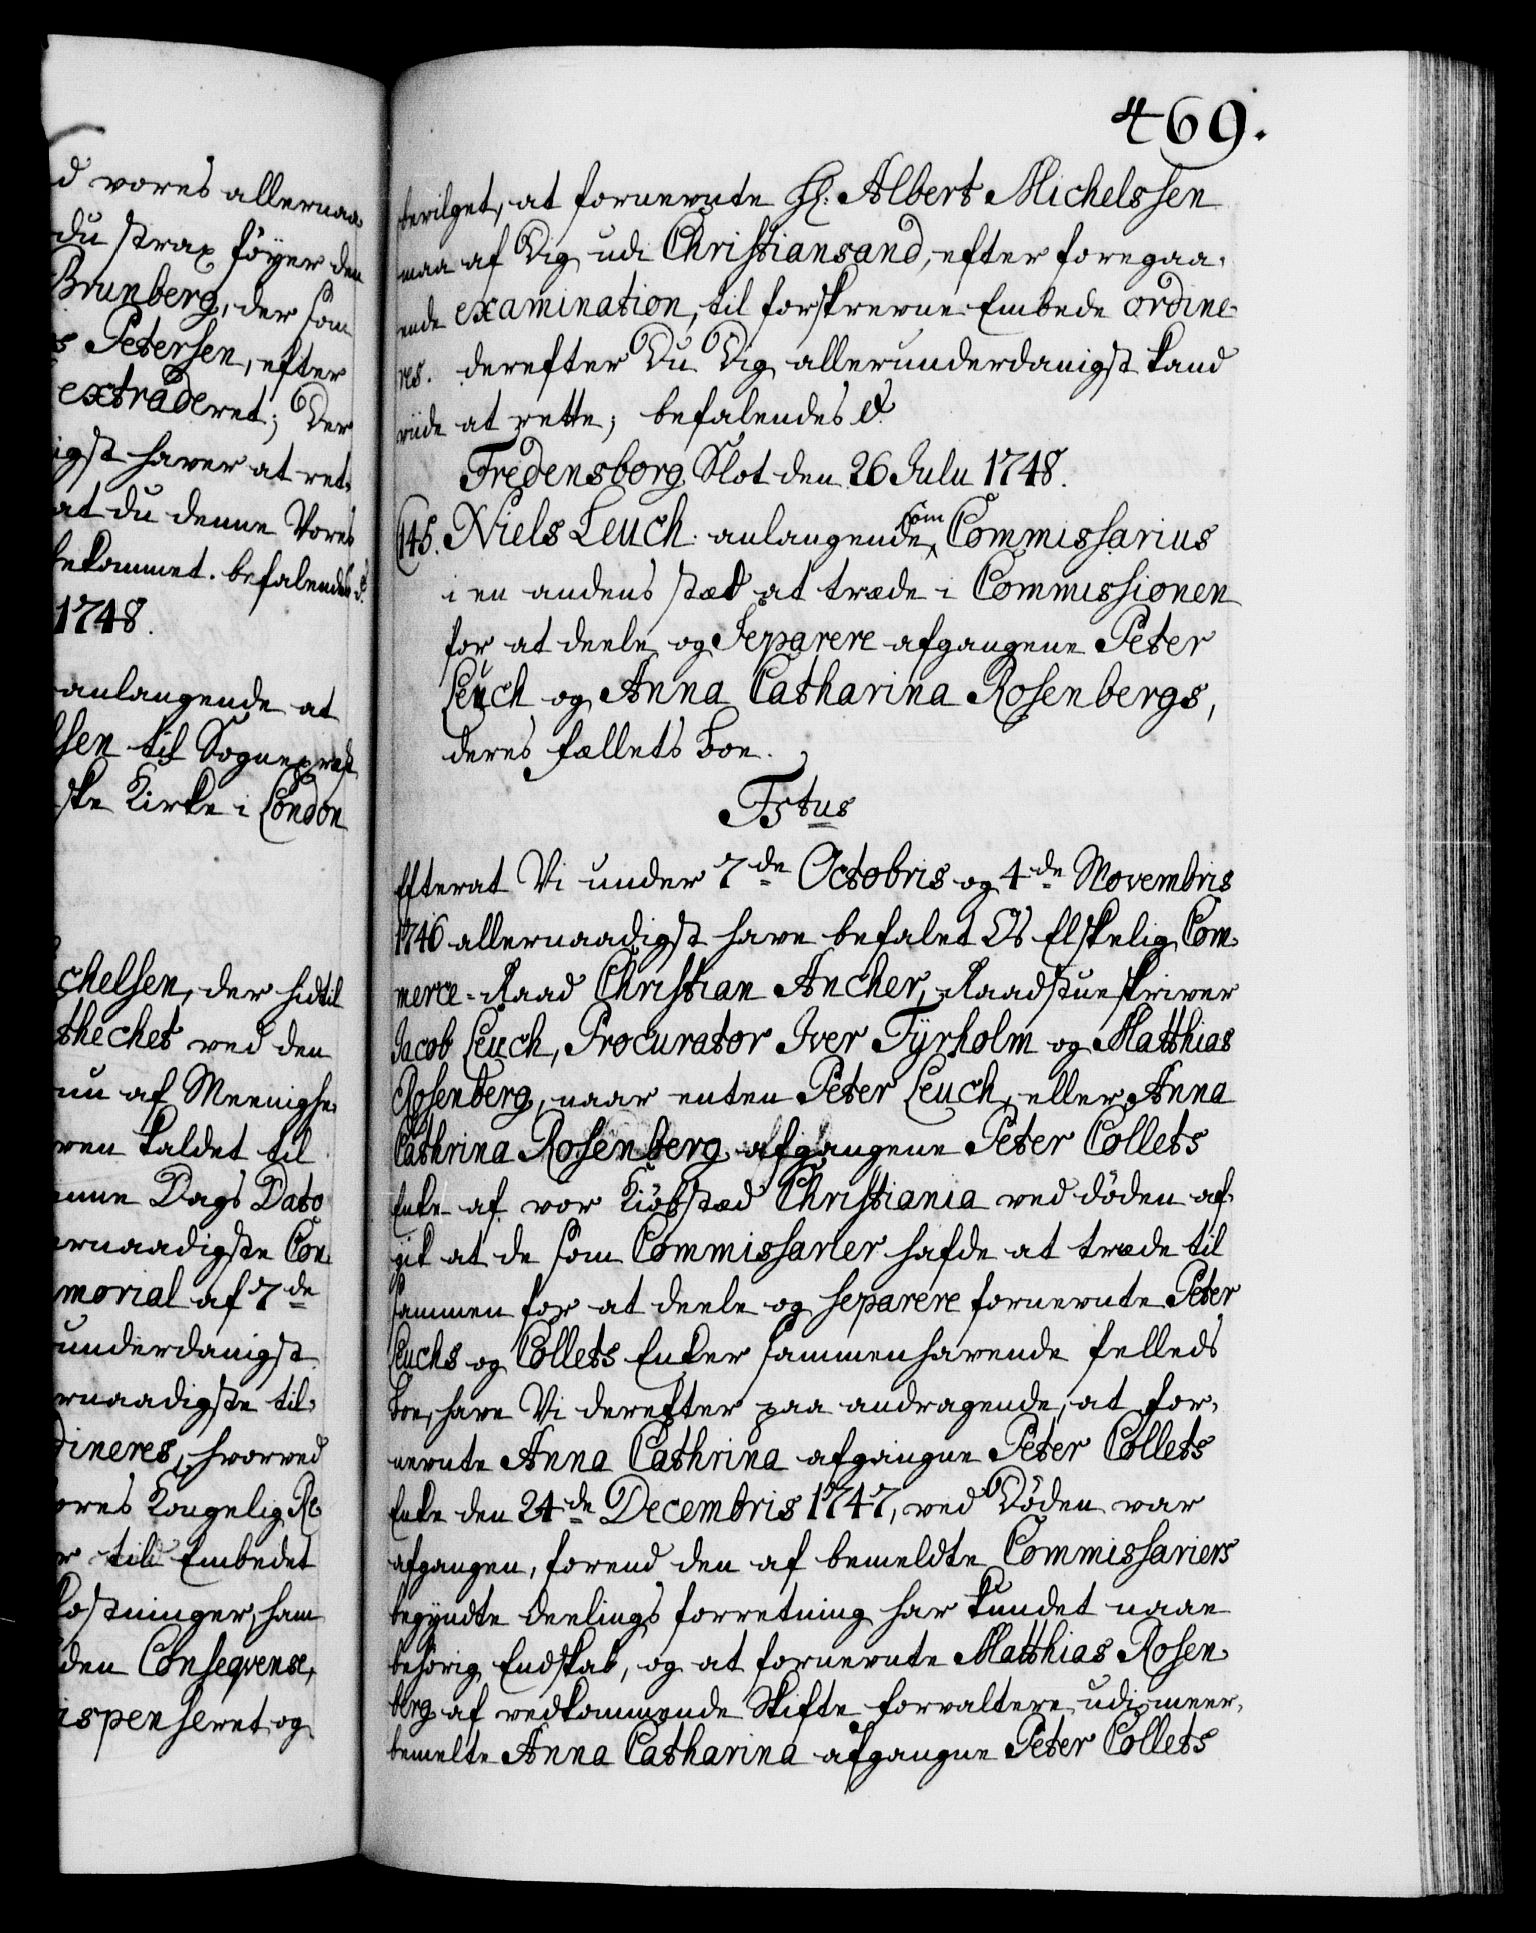 d vores allernaa-
du strax föyer den
Brunberg, der som
s Petersen, efter
extraderet; Der
igst haver at ret-
at du denne Vores
bekommet. befalendes &
1748.
anlangende at
sen til Sognepræst
ske Kirke i London
chelsen, der hidtil
thechet ved den
nu af Meenighe-
ven kaldet til
enne Dags Dato
ernaadigste Con-
morial af 7de
underdanigst
ernaadigste til-
dineres, hvorved
ores Kongelig Re-
r till Embedet
kostninger, ham
den Conseqvense,
ispenseret og
469.
bevilget, at fornevnte Hr. Albert Michelssen
maa af Dig udi Christiansand, efter foregaa-
ende examination, til forskrevne Embede ordine-
res. derefter Du Dig allerunderdanigst kand
viide at rette; befalendes &
Fredensborg Slot den 26 Julii 1748.
145. Niels Leuch anlangende, som Commissarius
i en andens stæd at træde i Commissionen
for at deele og Separere afgangene Peter
Leuch og Anna Catharina Rosenbergs,
deres fællets Boe.
F5tus
Efterat Vi under 7de Octobris og 4de Novembris
1746 allernaadigst have befalet Os Elskelig Com-
merce-Raad Christian Ancher, Raadstueskriver
Jacob Leuch, Procurator Iver Tyrholm og Matthias
Rosenberg, naar enten Peter Leuch, eller Anna
Cathrina Rosenberg afgangene Peter Collets
Enke af vor Kiöbstæd Christiania ved döden af-
gik at de som Commissarier hafde at træde til
sammen for at deele og separere fornevnte Peter
Leuchs og Collets Enkes sammenhavende felleds
Boe, have Vi derefter paa andragende, at for-
nevnte Anna Cathrina afgangne Peter Collets
Enke den 24de Decembris 1747, ved Döden var
afgangen, forend den af bemeldte Commissariers
begyndte deelings forretning har kundet naae
behörig Endskab, og at fornevnte Matthias Rosen-
berg af vedkommende Skifte forvaltere udi meer-
bemelte Anna Catharina afgangne Peter Collets